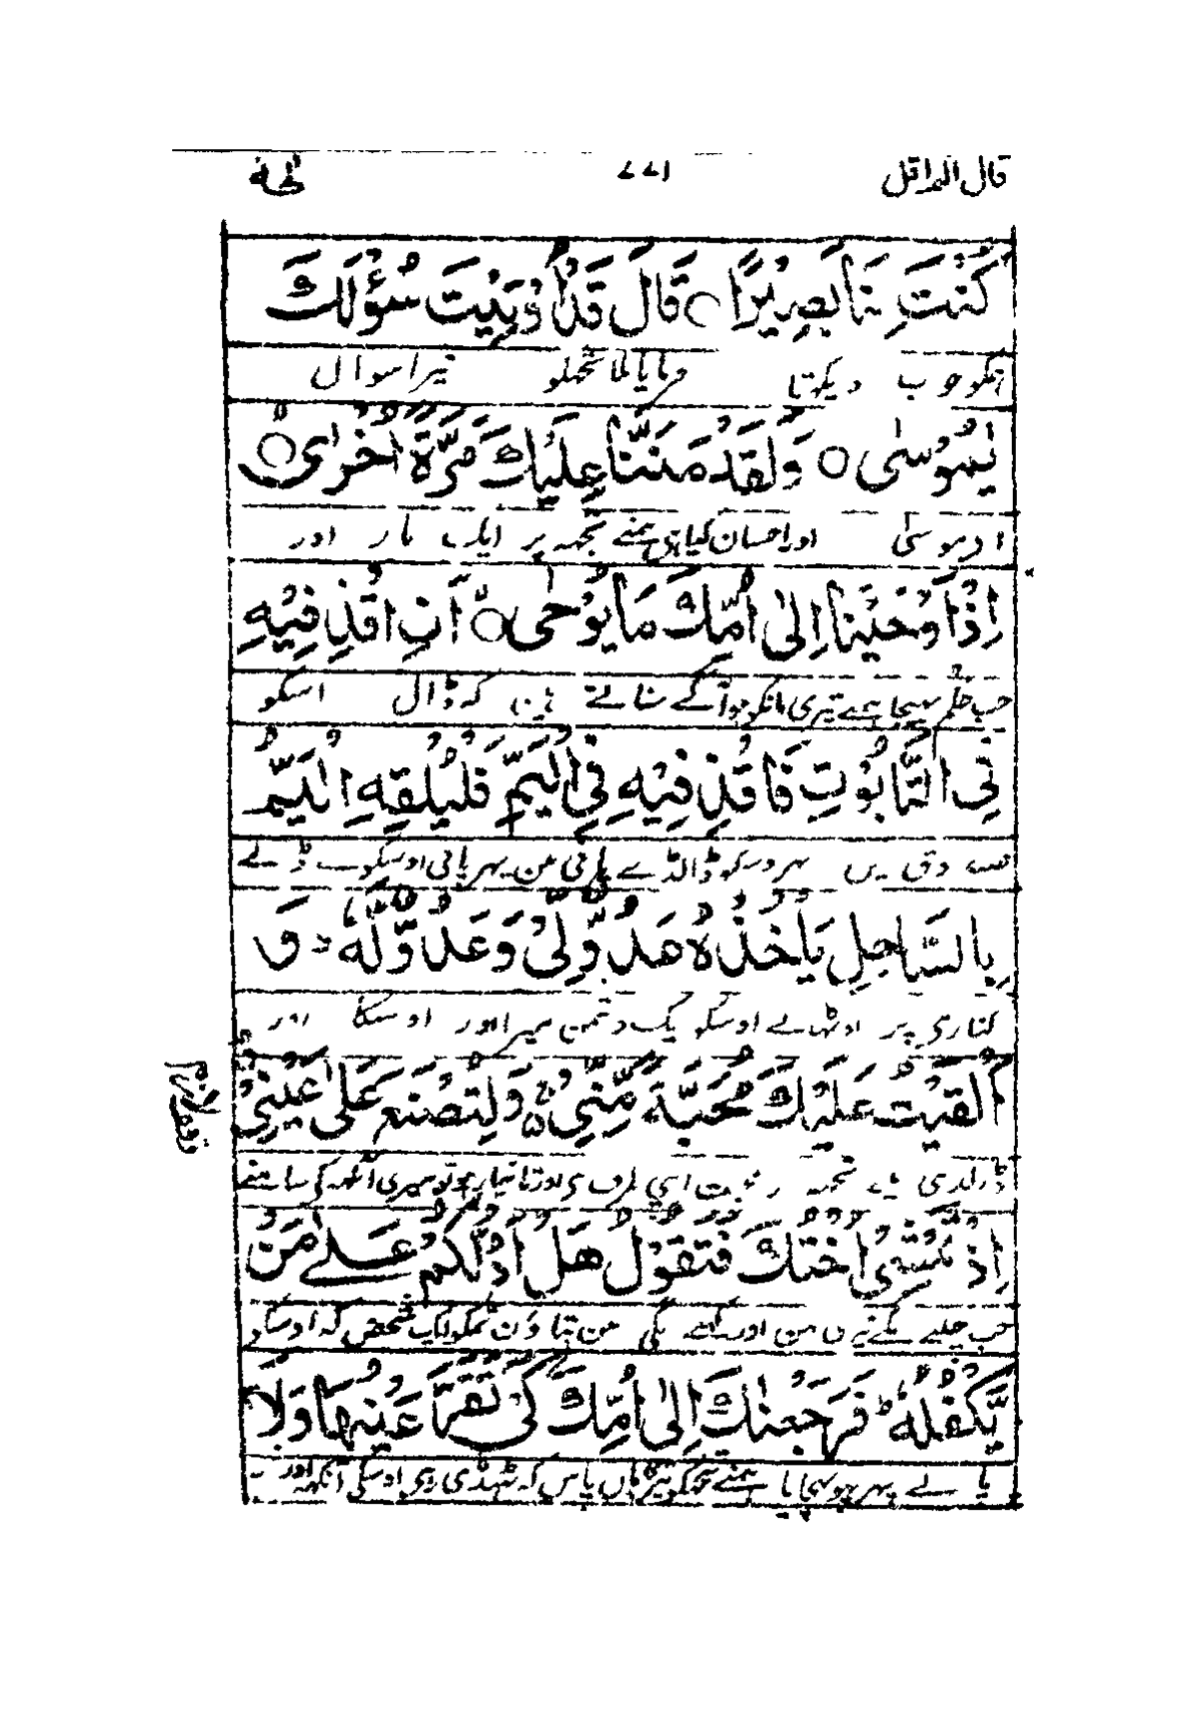 قال الم اقل ١١٧٧ طٰهٰ
كُنْتَ بِنَا بَصِيْرًا ○ قَالَ قَدْ اُوْتِيْتَ سُؤْلَكَ
ہمکو خوب دیکہتا فرمایا ملا تجھکو تیرا سوال
يٰمُوْسٰى ○ وَلَقَدْ مَنَنَّا عَلَيْكَ مَرَّةً اُخْرٰى ○
اور احسان کیا ہی ہمنے تجھہ پر ایک بار اور
اِذْ اَوْحَيْنَا اِلٰى اُمِّكَ مَا يُوْحٰى ○ اَنِ اقْذِفِيْهِ
جب حکم بہیجا ہمنے تیری مانکو جو آگے سناتے ہین کہ ڈال اسکو
فِى التَّابُوْتِ فَاقْذِفِيْهِ فِى الْيَمِّ فَلْيُلْقِهِ الْيَمُّ
پہر اوسکو ڈالدے پانی مین پہر پانی اوسکو لے ڈالے
بِالسَّاحِلِ يَاْخُذْهُ عَدُوٌّ لِّىْ وَعَدُوٌّ لَّهٗ ط وَ
کناری پر اوٹہالے اوسکو یک دشمن میرا اور اوسکا اور
اَلْقَيْتُ عَلَيْكَ مَحَبَّةً مِّنِّىْ ۵ وَلِتُصْنَعَ عَلٰى عَيْنِىْ
ڈالدی مین تجھہ پر محبت اپنی طرف سی اور تا تیار ہو تو میری آنکہہ کی سامنے
اِذْ تَمْشِىْ اُخْتُكَ فَتَقُوْلُ هَلْ اَدُلُّكُمْ عَلٰى مَنْ
جب چلنے لگے تیری بہن اور کہنے لگی مین بتاؤن تمکو ایک شخص کہ اوسکو
يَّكْفُلُهٗ ط فَرَجَعْنٰكَ اِلٰى اُمِّكَ كَىْ تَقَرَّ عَيْنُهَا وَلَا
پالے پہر پہونچایا ہمنے تجھکو تیری مان پاس کہ ٹہنڈی رہی اوسکی آنکہہ اور نہ